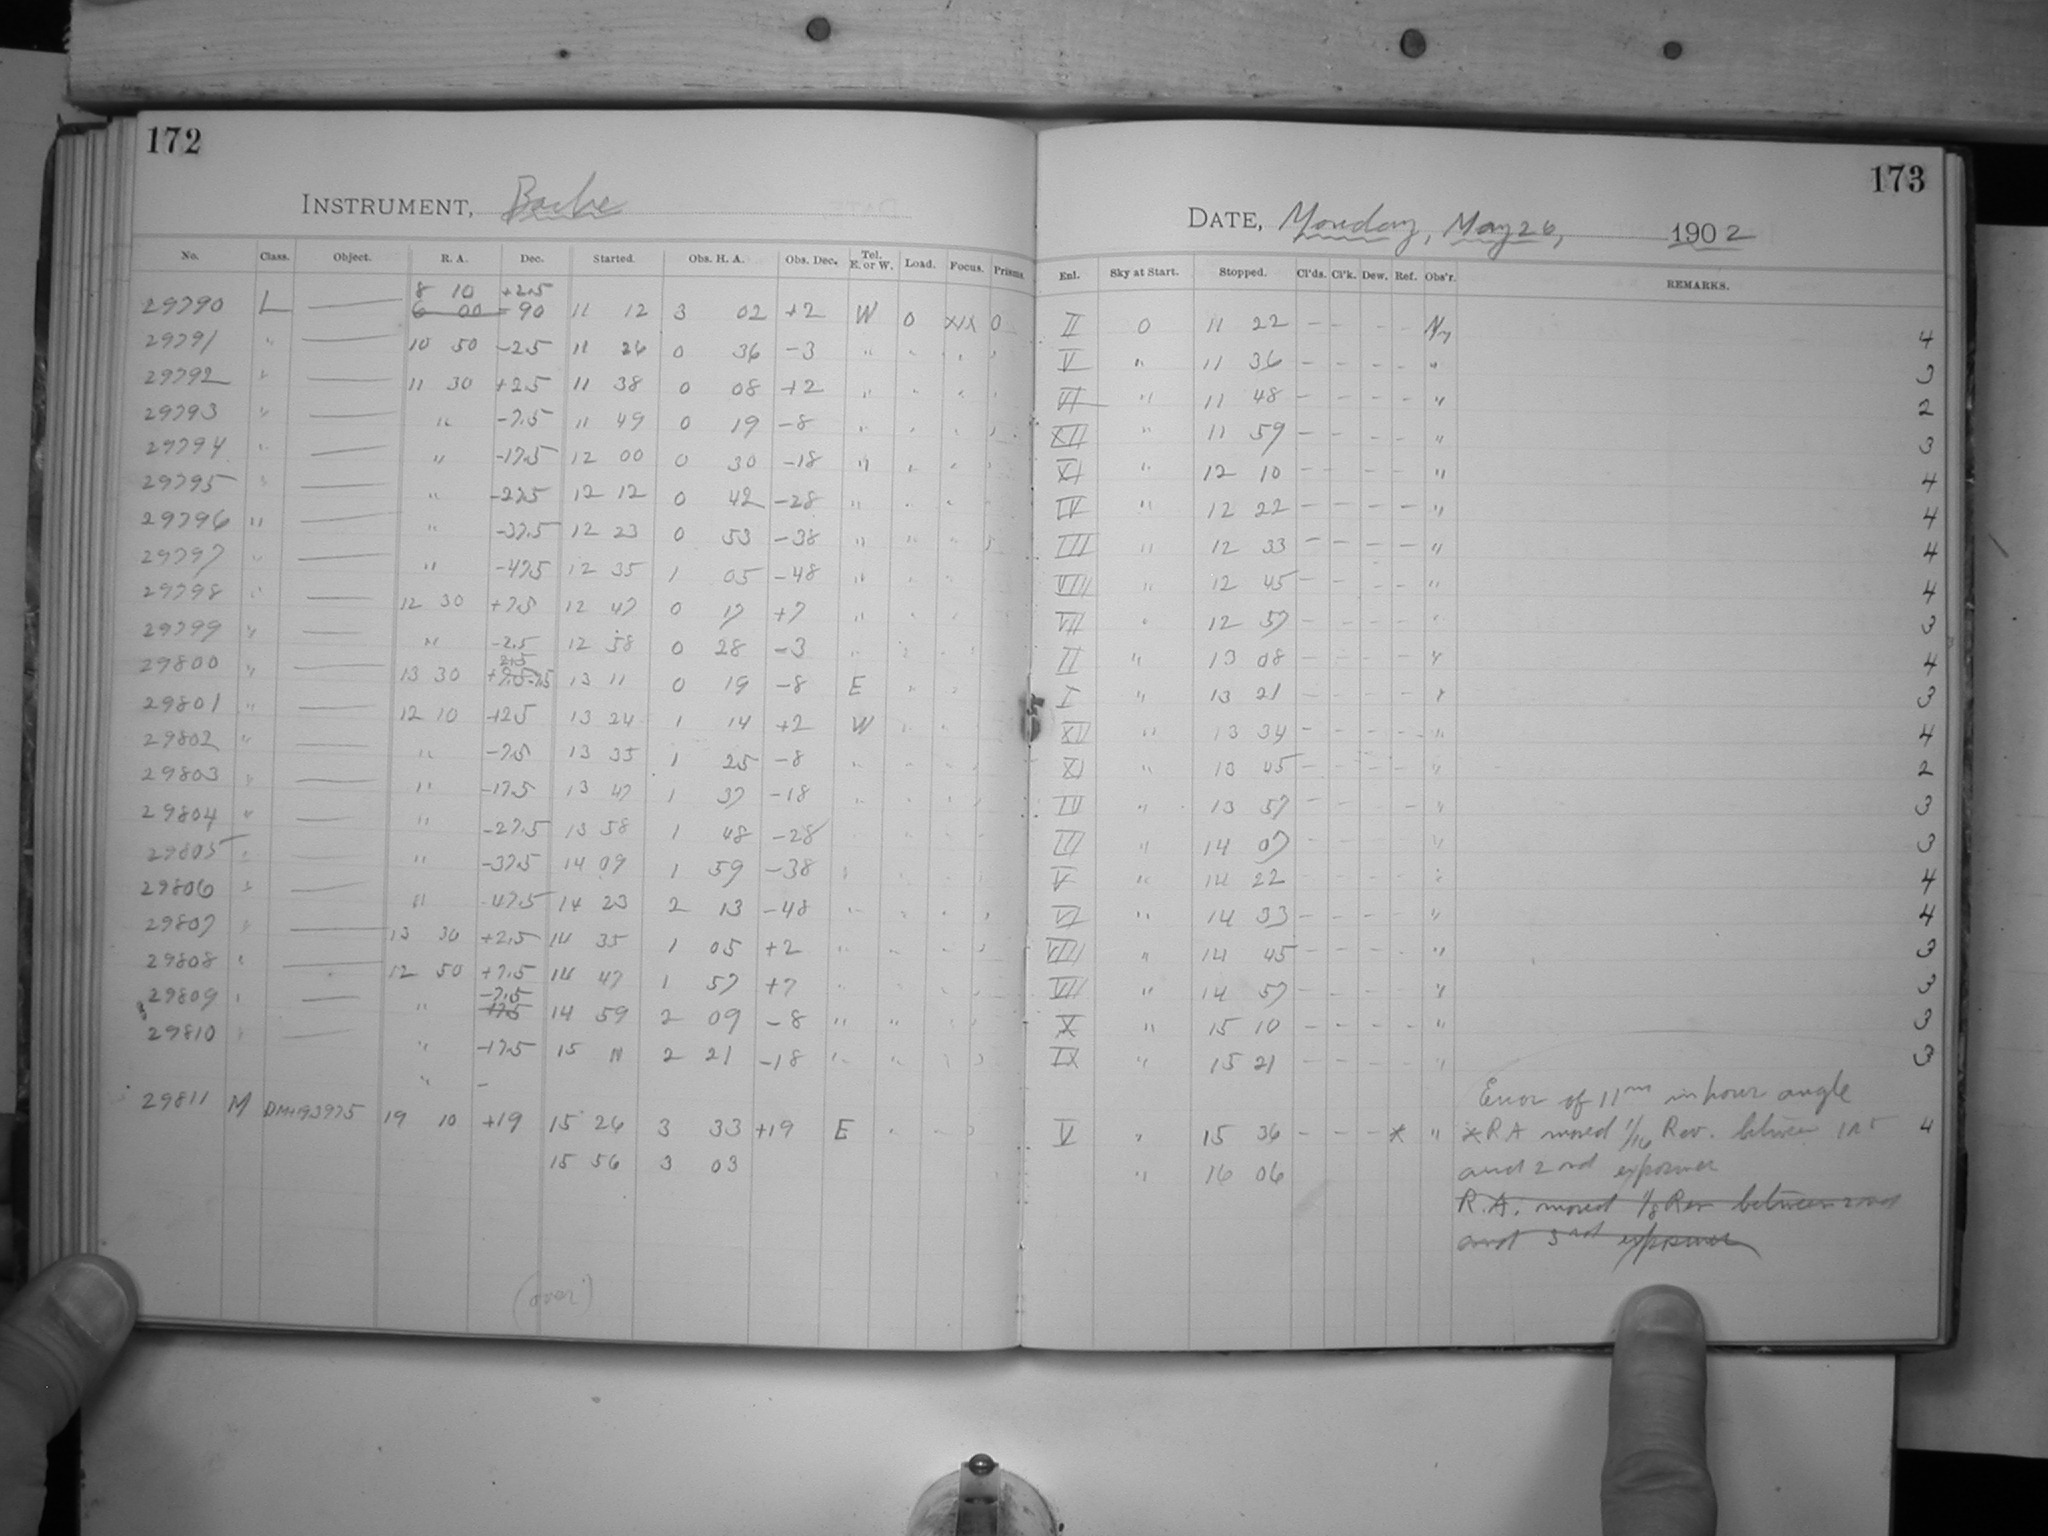 172
INSTRUMENT, Bache
No. Class. Object. R. A. Dec. Started. Obs. H. A. Obs. Dec. Tel. E. or W. Load. Focus. Prisms.
8 10 +2.5
29790 L — 6 00 -90 11 12 3 02 +2 W 0 XIX 0
29791 " — 10 50 -2.5 11 26 0 36 -3 " " " "
29792 " — 11 30 +2.5 11 38 0 08 +2 " " " "
29793 " — " -7.5 11 49 0 19 -8 " " " "
29794 " — " -17.5 12 00 0 30 -18 " " " "
29795 " — " -27.5 12 12 0 42 -28 " " " "
29796 " — " -37.5 12 23 0 53 -38 " " " "
29797 " — " -47.5 12 35 1 05 -48 " " "
29798 " — 12 30 +7.5 12 47 0 17 +7 " " " "
29799 " — " -2.5 12 58 0 28 -3 " " " "
29800 " — 13 30 -7.5 13 11 0 19 -8 E " "
29801 " — 12 10 +2.5 13 24 1 14 +2 W " " "
29802 " — " -7.5 13 35 1 25 -8 " " " "
29803 " — " -17.5 13 47 1 37 -18 " " " "
29804 " — " -27.5 13 58 1 48 -28 " " "
29805 " — " -37.5 14 09 1 59 -38 " " " "
29806 " — " -47.5 14 23 2 13 -48 " " " "
29807 " — 13 30 +2.5 14 35 1 05 +2 " " " "
29808 " — 12 50 +7.5 14 47 1 57 +7 " " " "
-7.5
29809 " — " +7.5 14 59 2 09 -8 " " " "
29810 " — " -17.5 15 11 2 21 -18 " " " "
" -
29811 M DM+193975 19 10 +19 15 26 3 33 +19 E " " "
15 56 3 03
(over)
173
DATE, Monday, May 26, 1902
Enl. Sky at Start. Stopped. Cl'ds. Cl'k. Dew. Ref. Obs'r. REMARKS.
II 0 11 22 - - - - 4
V " 11 36 - - - - " 3
VI " 11 48 - - - - " 2
XII " 11 59 - - - - " 3
XI " 12 10 - - - - " 4
IV " 12 22 - - - - " 4
III " 12 33 - - - - " 4
VIII " 12 45 - - - - " 4
VII " 12 57 - - - - " 3
II " 13 08 - - - - " 4
I " 13 21 - - - - " 3
" 13 34 - - - - " 4
XI " 13 45 - - - - " 2
IV " 13 57 - - - - " 3
III " 14 07 - - - - " 3
V " 14 22 - - - - " 4
VI " 14 33 - - - - " 4
VIII " 14 45 - - - - " 3
VII " 14 57 - - - - " 3
X " 15 10 - - - - " 3
IX " 15 21 - - - - " 3
Error of 11m in hour angle
V " 15 36 - - - * " *RA moved 1/16 Rev. between 1st 4
and 2nd exposures
" 16 06
R.A. moved 1/8 Rev between 2nd
and 3rd exposures